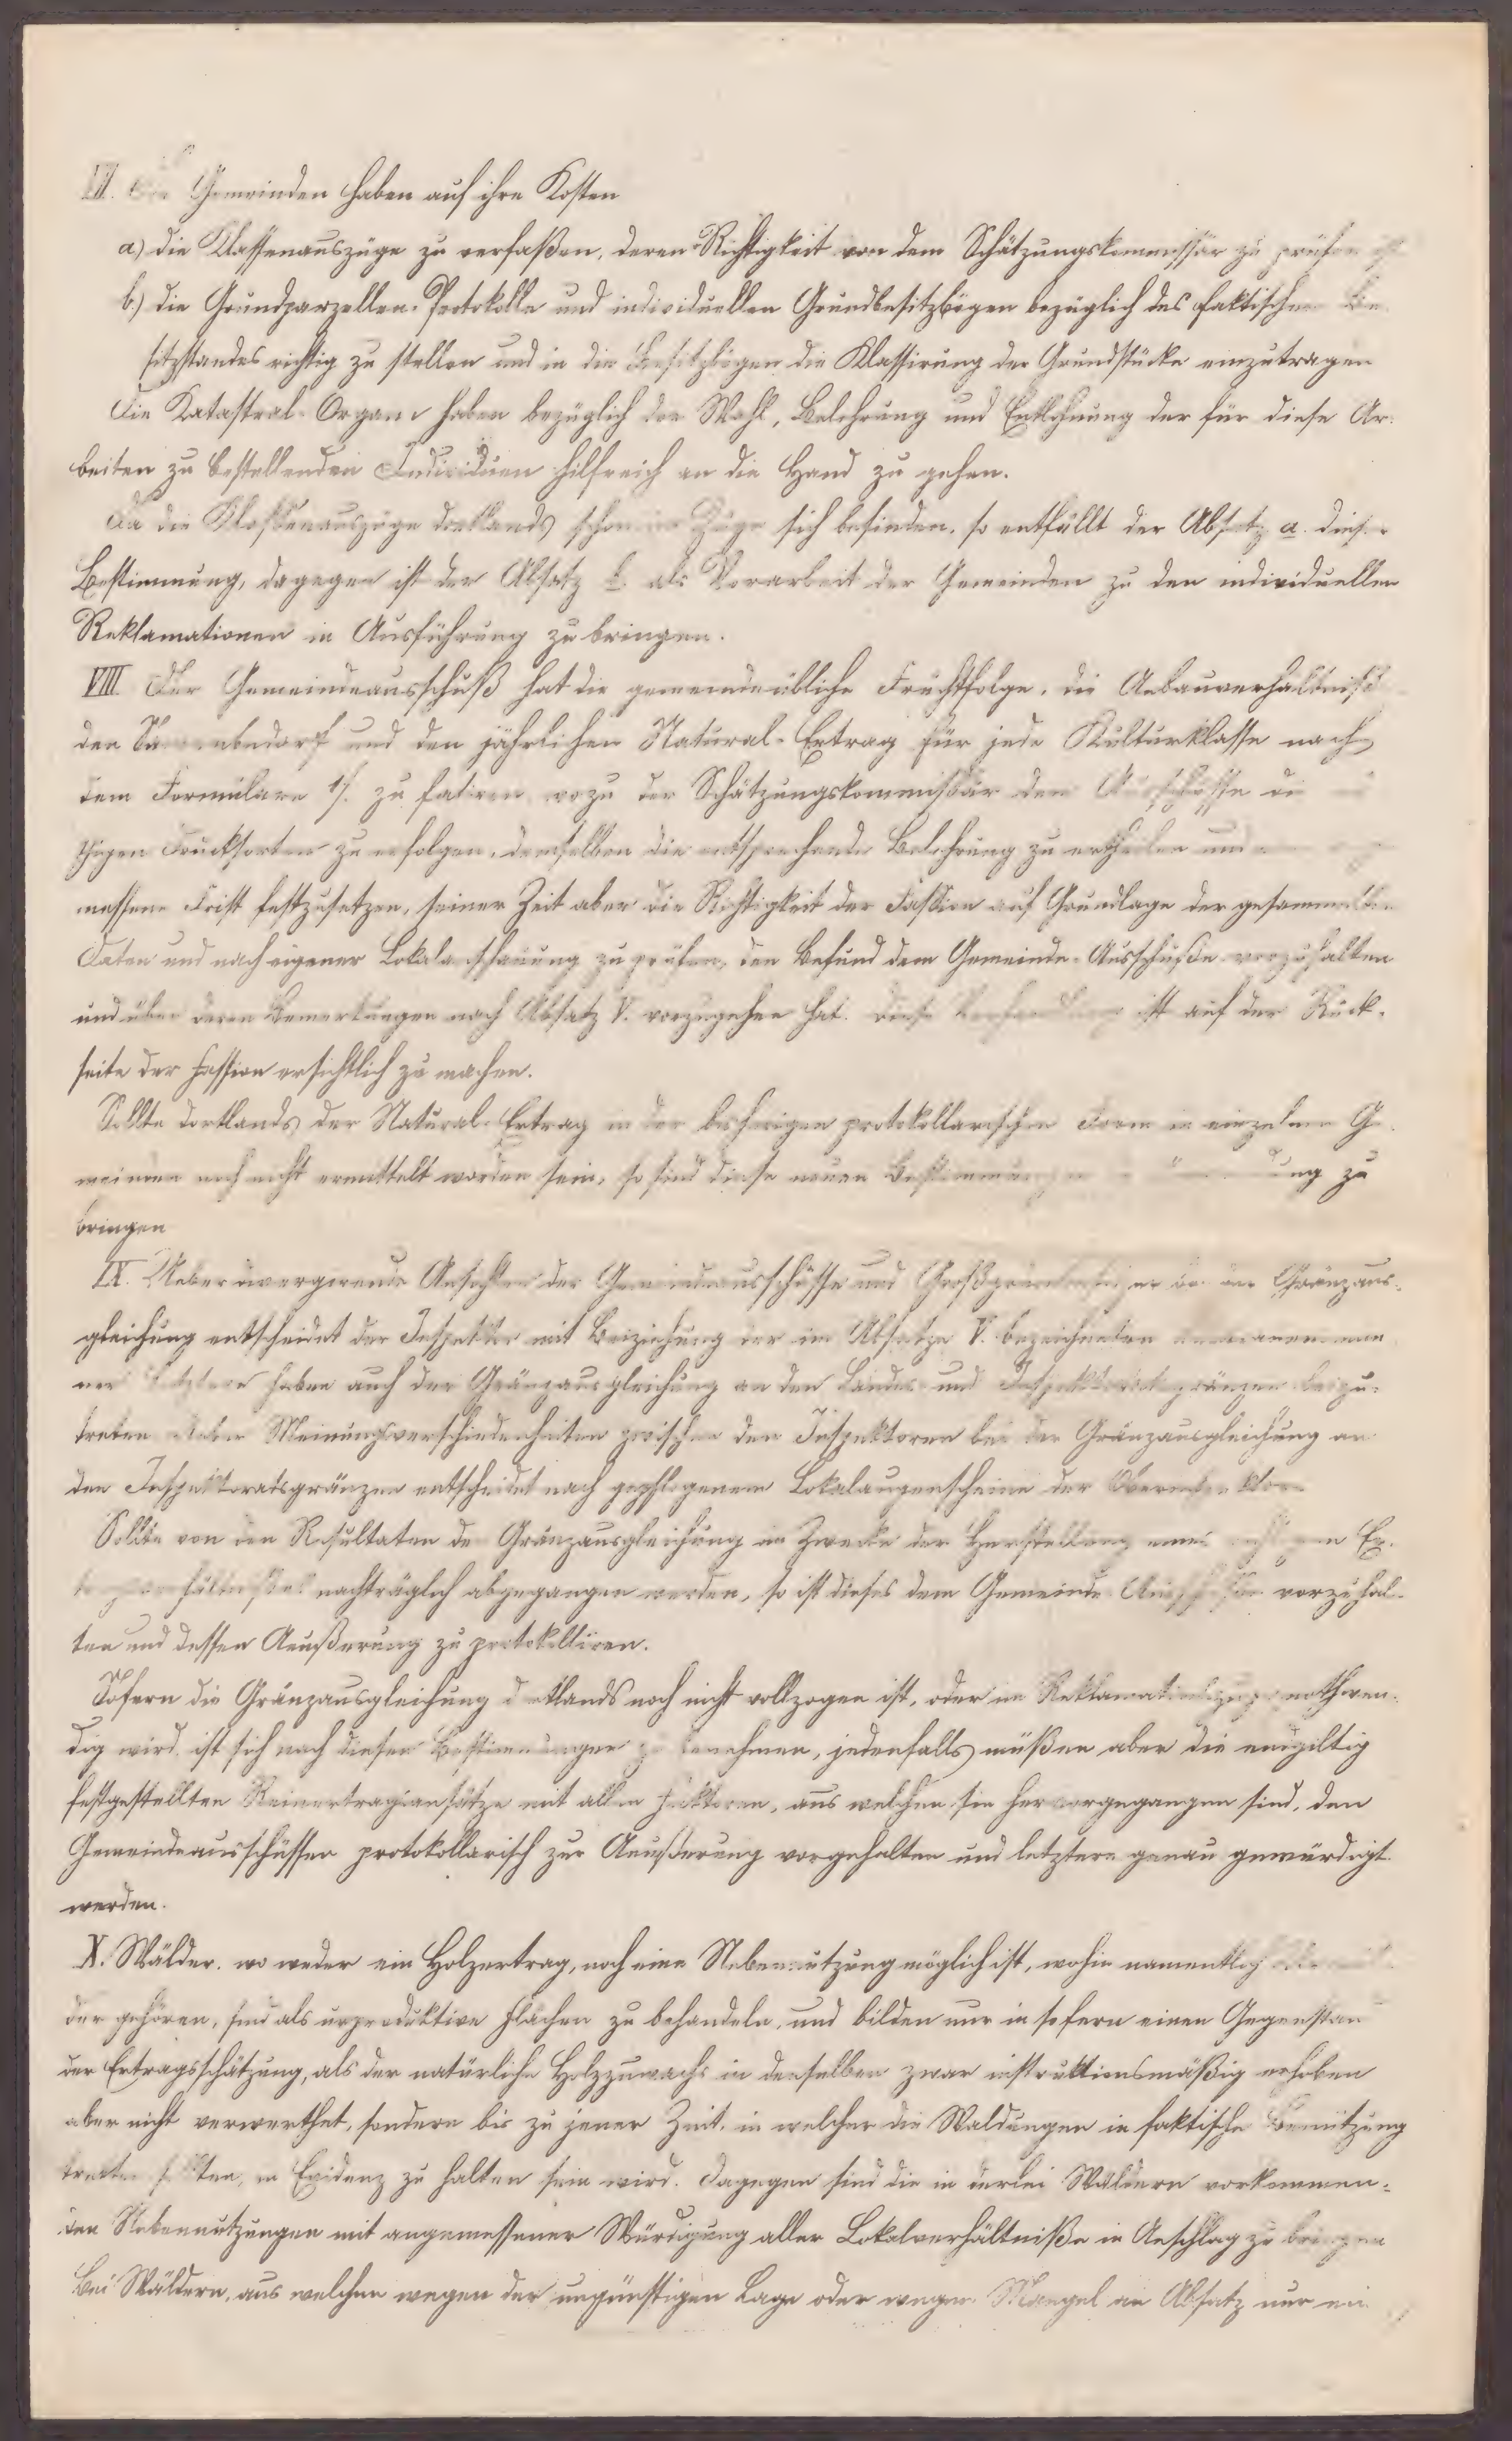 VII. Die Gemeinden haben auf ihre Kosten
a.) die Klassenauszüge zu verfaßen, deren Richtigkeit von dem Schätzungskommissär zu prüfen ist
b.) die Grundparzellen-Protokolle und individuellen Grundbesitzbögen bezüglich des faktischen Be-
sitzstandes richtig zu stellen und in die Besitzbögen die Klassirung der Grundstücke einzutragen
Die Katastral-Organe haben bezüglich der Wahl, Belehrung und Entlohnung der für diese Ar-
beiten zu bestellenden Individuen hilfreich an die Hand zu gehen.
Da die Klassenauszüge dortlands schon im Zuge sich befinden, so entfällt der Absatz a. dieser
Bestimmung, dagegen ist der Absatz b. als Vorarbeit der Gemeinden zu den individuellen
Reklamationen in Ausführung zu bringen.
VIII Der Gemeindeausschuß hat die gemeindeübliche Fruchtfolge, die Anbauverhältniße
den Samenbedarf und den jährlichen Natural-Ertrag für jede Kulturklasse nach
dem Formulare 1/. zu fatiren wozu der Schätzungskommissär dem Ausschusse die
thigen Drucksorten zu erfolgen, demselben die entsprechende Belehrung zu ertheilen und
messene Frist festzusetzen, seiner Zeit aber die Richtigkeit der Fassion auf Grundlage der gesammelten
Daten und nach eigener Lokalanschauung zu prüfen, den Befund dem Gemeinde-Ausschuße vorzuhalten
und über deren Bemerkungen nach Absatz V. vorzugehen hat. Diese Verhandlung ist auf der Rück-
seite der Fassion ersichtlich zu machen.
Sollte dortlands der Natural-Ertrag in der bisherigen protokollarischen Form in einzelnen Ge-
meinden noch nicht ermittelt worden sein, so sind diese neuen Bestimmungen zu
bringen
IX. Ueber divergirende Ansichten der Gemeindeausschüsse und Großgrundbesitzer bei der Gränzaus-
gleichung entscheidet der Inspektor mit Beiziehung der im Absatze V. bezeichneten
ner Letztere haben auch der Gränzausgleichung an den Landes- und Inspektoratsgränzen beizu-
treten Ueber Meinungsverschiedenheiten zwischen den Inspektoren bei der Gränzausgleichung an
den Inspektoratsgränzen entscheidet nach gepflogenem Lokalaugenscheine der Oberinspektor
Sollte von den Resultaten der Gränzausgleichung im Zwecke der Herstellung eines richtigen Er-
tragsverhältnißes nachträglich abgegangen werden, so ist dieses dem Gemeinde Ausschuße vorzuhal-
ten und dessen Aeußerung zu protokolliren.
Sofern die Gränzausgleichung dortlands noch nicht vollzogen ist, oder im Reklamationszuge nothwen-
dig wird ist sich nach diesen Bestimmungen zu benehmen, jedenfalls müßen aber die endgiltig
festgestellten Reinertragsansätze mit allen Faktoren, aus welchen sie hervorgegangen sind, den
Gemeindeausschüssen protokollarisch zur Aeußerung vorgehalten und letztere genau gewürdigt
werden.
X. Wälder, wo weder ein Holzertrag, noch eine Nebennutzung möglich ist, wohin namentlich
der gehören, sind als unproduktive Flächen zu behandeln, und bilden nur in sofern einen Gegenstand
der Ertragsschätzung, als der natürliche Holzzuwachs in denselben zwar instruktionsmäßig erhoben
aber nicht verwerthet, sondern bis zu jener Zeit, in welcher die Waldungen in faktische Benützung
treten sollten, in Evidenz zu halten sein wird. Dagegen sind die in derlei Wäldern vorkommen-
den Nebennutzungen mit angemessener Würdigung aller Lokalverhältniße in Anschlag zu bringen
Bei Wäldern, aus welchen wegen der ungünstigen Lage oder wegen Mangel an Absatz nur ein